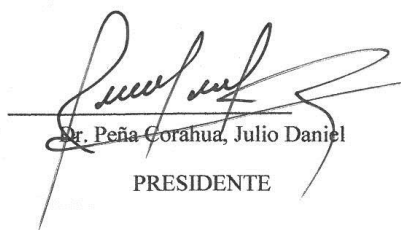 Dr. Peña Corahua, Julio Daniel
PRESIDENTE